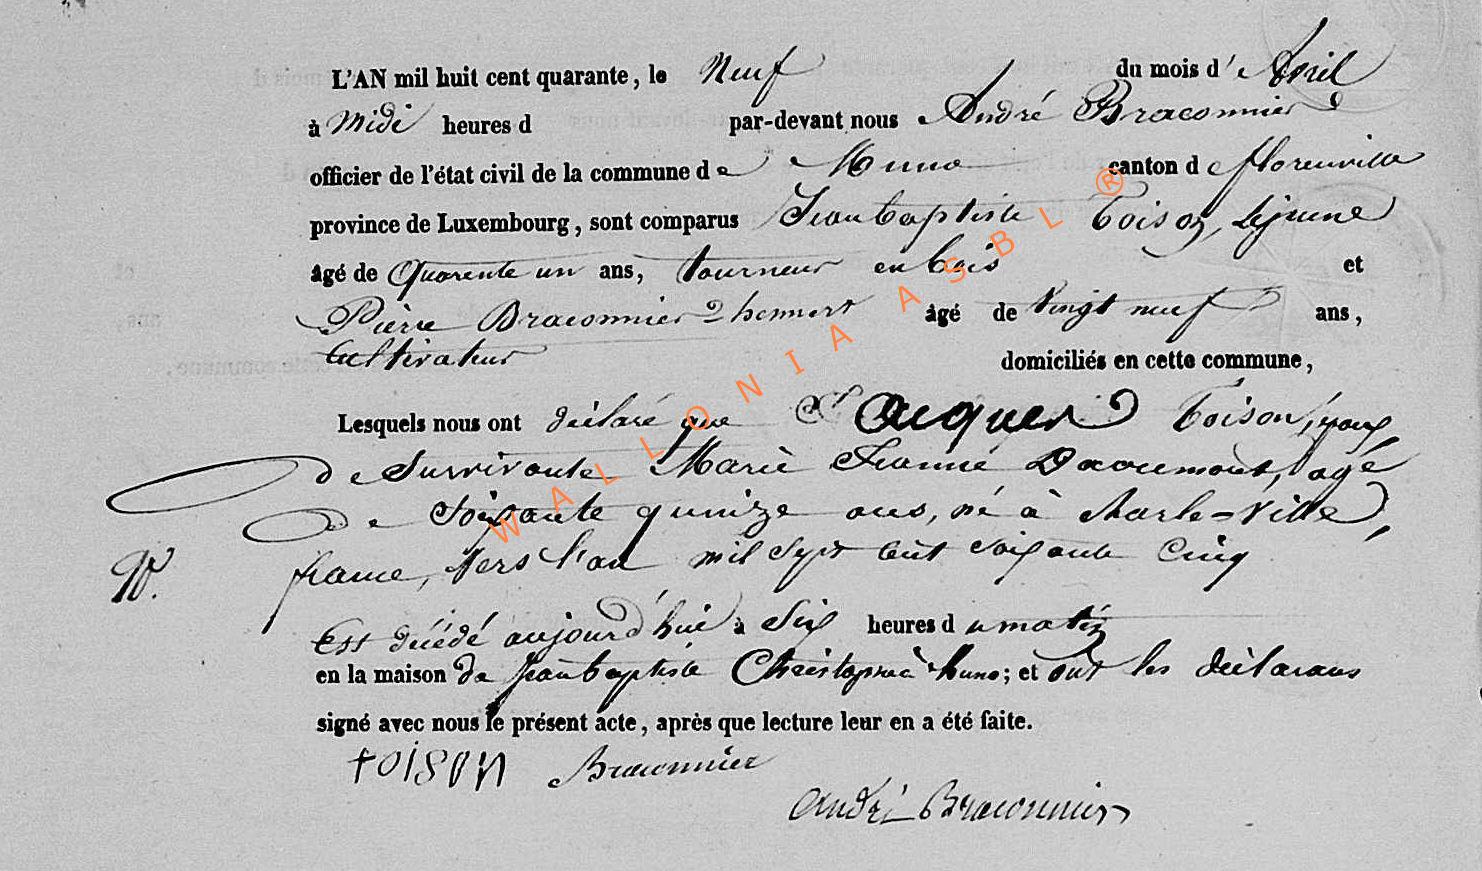 L'AN mil huit cent quarante, le Neuf du mois d'Avril
à Midi heures d par-devant nous André Braconnier
officier de l'état civil de la commune de Muno canton de florenville
province de Luxembourg, sont comparus Jean baptiste Toison, Lejeune
âgé de Quarente un ans, tourneur en bois et
Pierre Braconnier âgé de Vingt neuf ans,
Cultivateur domiciliés en cette commune,
Lesquels nous ont déclaré que Jacques Toison, époux
de Survivante Marie Jeanne agé
de Soixante quinze ans, né à Charle-Ville,
france, Vers l'an mil Sept Cent Soixante Cinq
Est décédé aujourd'hui à Six heures du matin
en la maison de Jean baptiste à Muno; et ont les déclarans
signé avec nous le présent acte, après que lecture leur en a été faite.
tOISON Braconnier
André Braconnier
WALLONIA ASBL ®